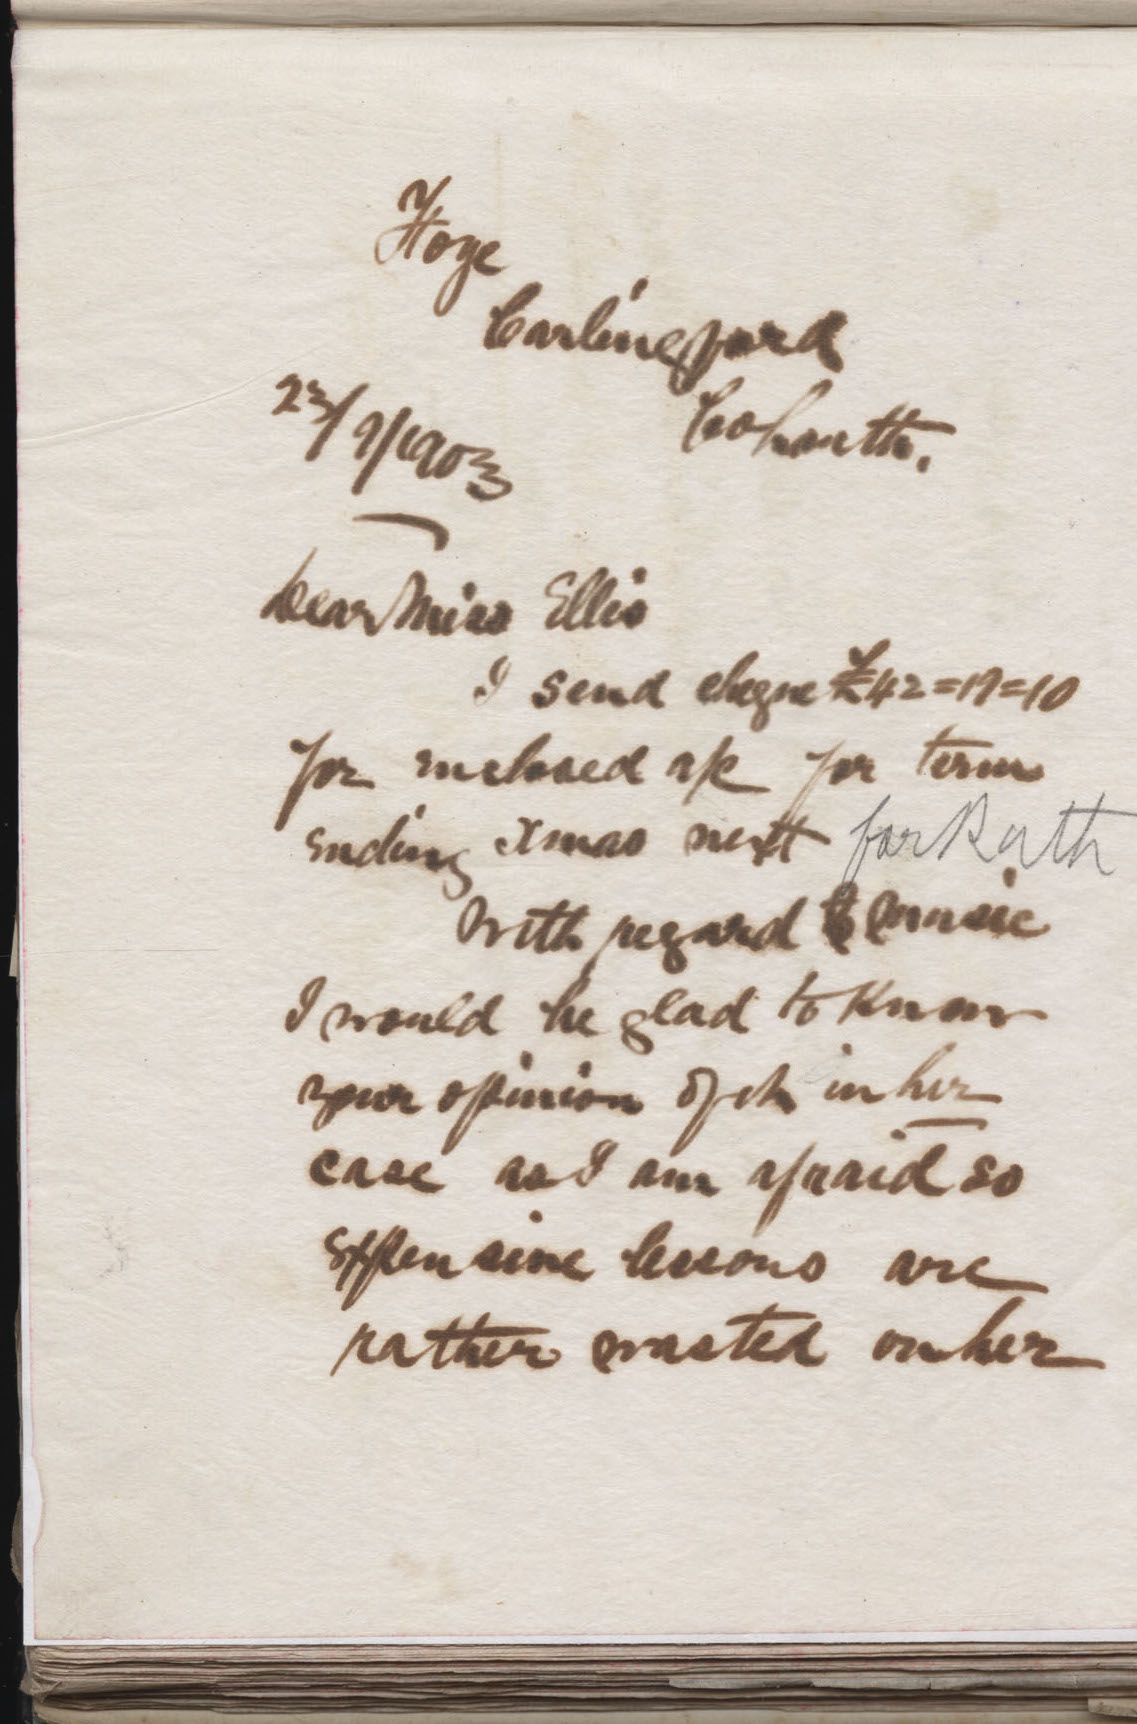 Carlingford
Co Louth.
23/9/1903
Dear Miss Ellis
I send cheque £42=19=10
for enclosed a/c for term
ending Xmas next for Ruth
With regard to music
I would be glad to know
your opinion of it in her
case as I am afraid so
expensive lessons are
rather wasted on her